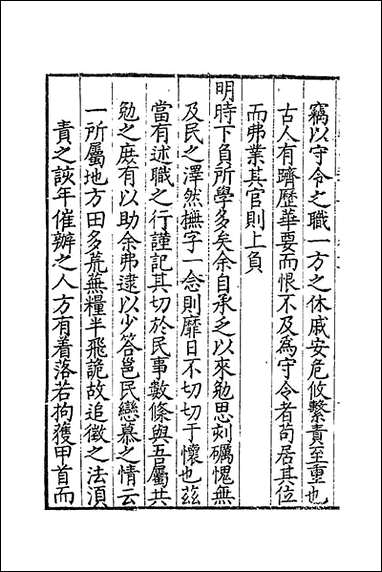 竊以守令之職一方之休戚安危攸繫責至重也
古人有躋歷華要而恨不及為守令者茍居其位
而弗業其官則上負
明時下負所學多矣余自承乏以來勉思刻礪愧無
及民之澤然撫字一念則靡日不切切于懷也茲
當有述職之行謹記其切於民事數條與吾屬共
勉之庶有以助余弗逮以少答邑民戀慕之情云
一所屬地方田多荒蕪糧半飛詭故追徵之法須
責之該年催辦之人方有着落若拘獲甲首而